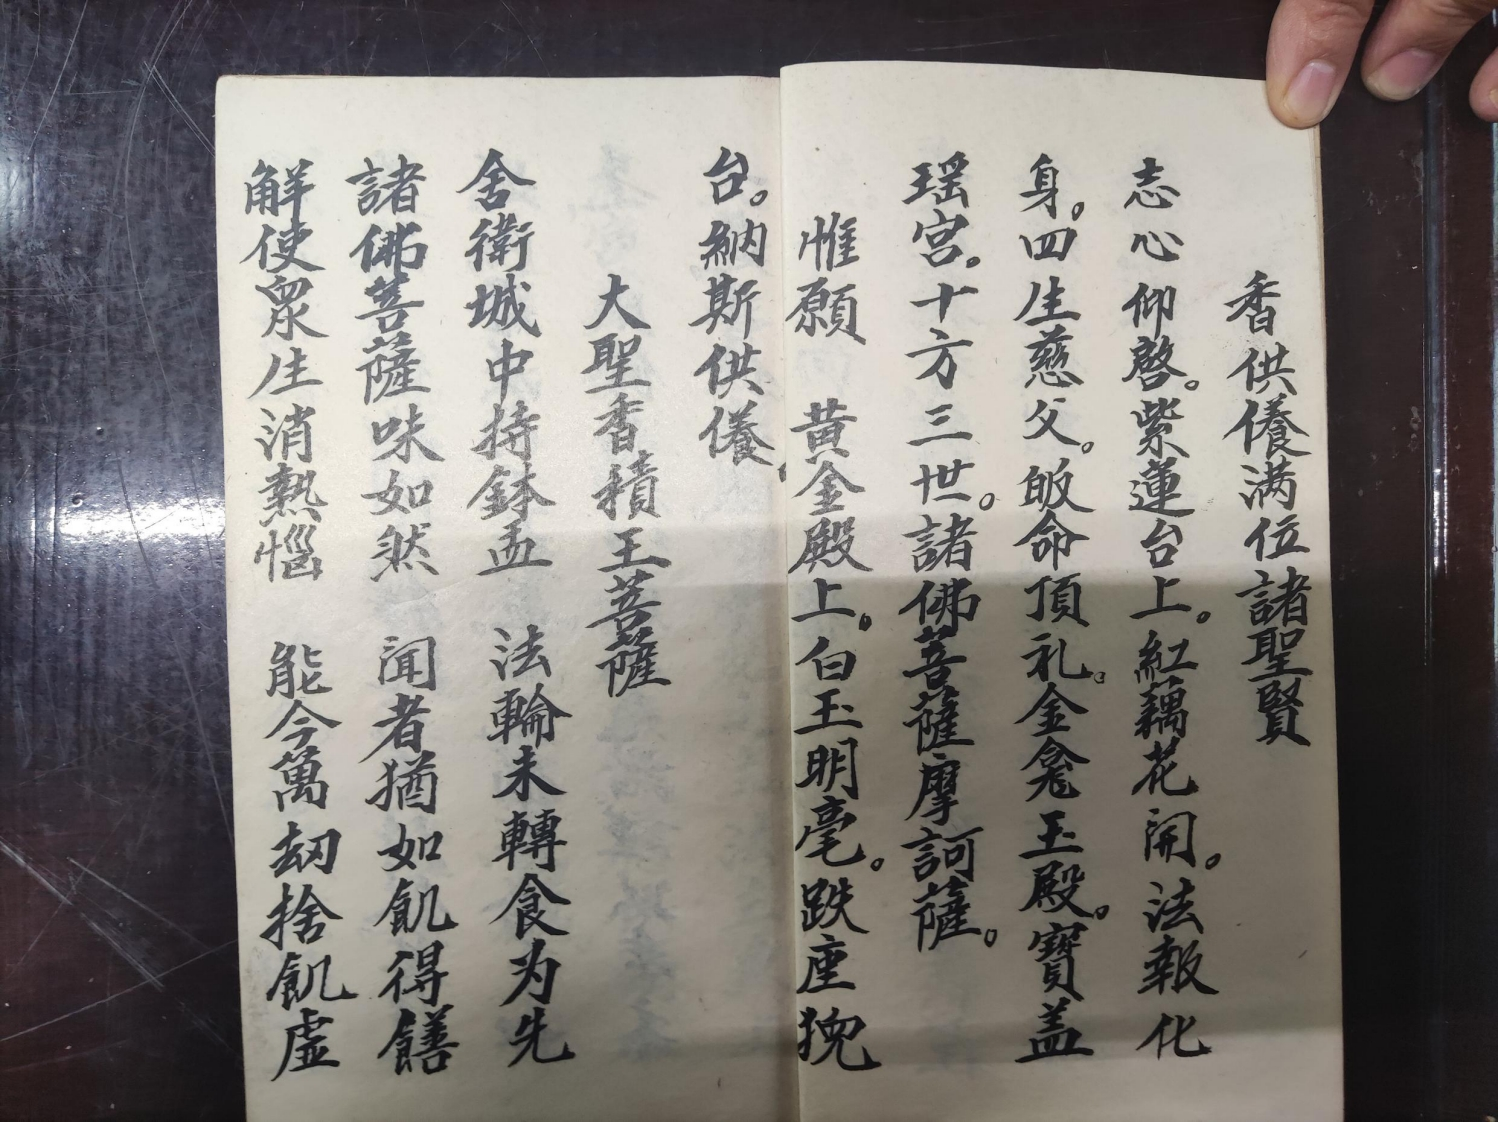 香供養满位諸聖賢
志心仰啓。紫蓮台上。紅藕花開。法報化
身。四生慈父。皈命頂礼。金龛玉殿。寳盖
瑶宫。十方三世。諸佛菩薩摩訶薩。
惟願　黄金殿上。白玉明毫。趺座猊
台。納斯供養。
大聖香積王菩薩
舍衛城中持鉢盂　法輪未轉食为先
諸佛菩薩味如然　闻者猶如飢得饍
解使衆生消熱惱　能令萬劫捨飢虚